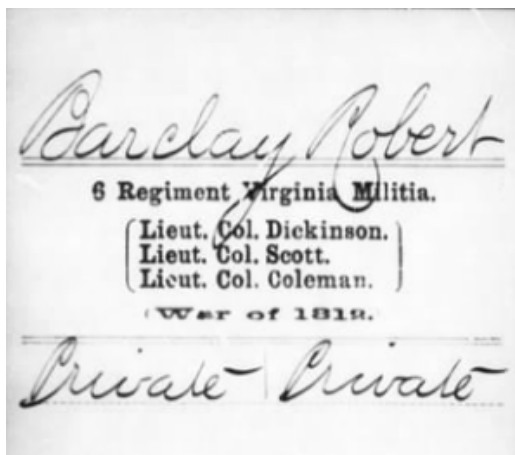 Barclay Robert
6 Regiment Virginia Militia.
Lieut. Col. Dickinson.
Lieut. Col. Scott.
Lieut. Col. Coleman.
(War of 1812.)
Private | Private